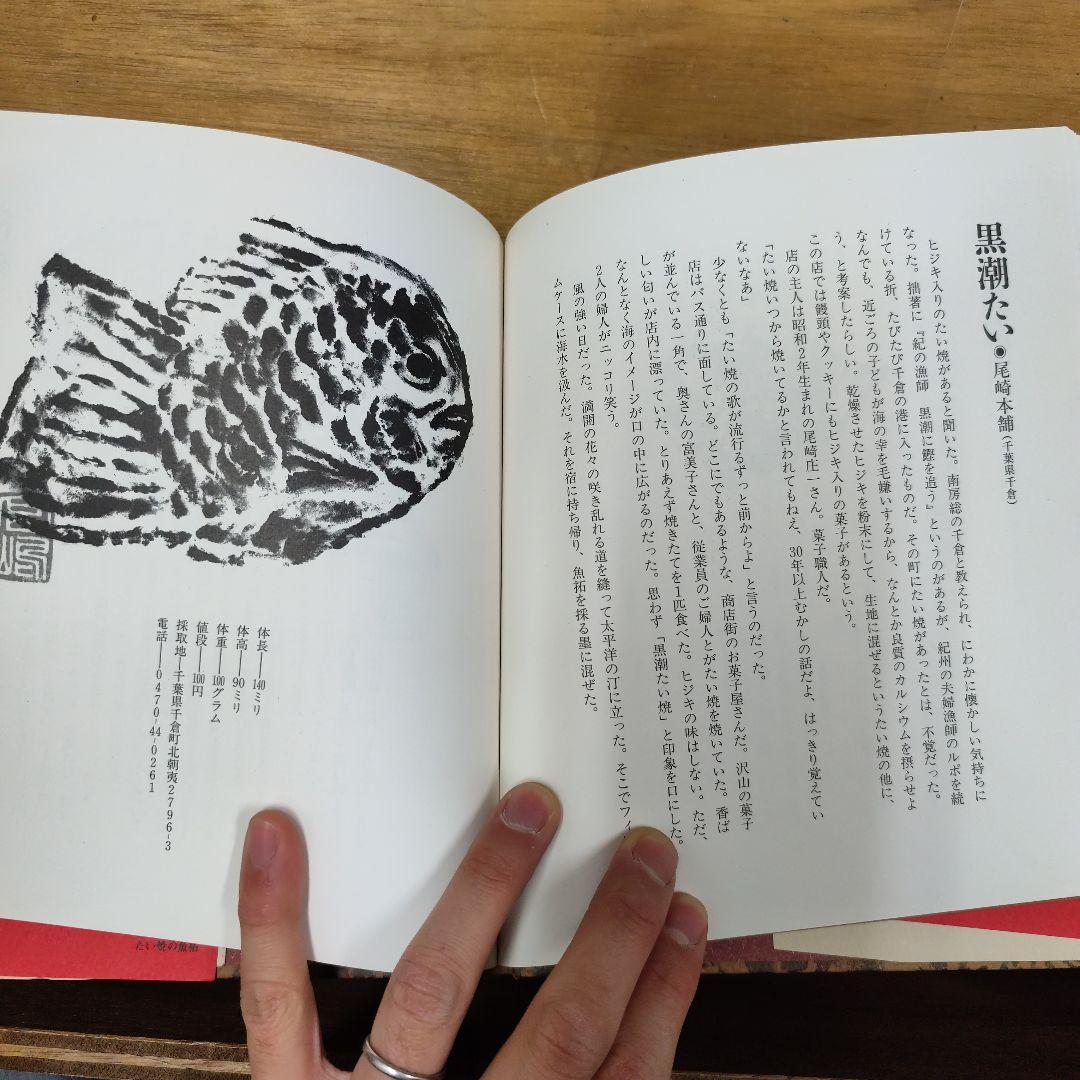 黒潮たい●尾崎本舗(千葉県千倉)
ヒジキ入りのたい焼があると聞いた。南房総の千倉と教えられ、にわかに懐かしい気持ちに
なった。拙著に『紀の漁師　黒潮に鰹を追う』というのがあるが、紀州の夫婦漁師のルポを続
けている折、たびたび千倉の港に入ったものだ。その町にたい焼があったとは、不覚だった。
なんでも、近ごろの子どもが海の幸を毛嫌いするから、なんとか良質のカルシウムを摂らせよ
う、と考案したらしい。乾燥させたヒジキを粉末にして、生地に混ぜるというたい焼の他に、
この店では饅頭やクッキーにもヒジキ入りの菓子があるという。
店の主人は昭和2年生まれの尾崎庄一さん。菓子職人だ。
「たい焼いつから焼いてるかと言われてもねえ、30年以上むかしの話だよ、はっきり覚えてい
ないなあ」
少なくとも「たい焼の歌が流行るずっと前からよ」と言うのだった。
店はバス通りに面している。どこにでもあるような、商店街のお菓子屋さんだ。沢山の菓子
が並んでいる一角で、奥さんの富美子さんと、従業員のご婦人とがたい焼を焼いていた。香ば
しい匂いが店内に漂っていた。とりあえず焼きたてを1匹食べた。ヒジキの味はしない。ただ、
なんとなく海のイメージが口の中に広がるのだった。思わず「黒潮たい焼」と印象を口にした。
2人の婦人がニッコリ笑う。
風の強い日だった。満開の花々の咲き乱れる道を縫って太平洋の汀に立った。そこでフィル
ムケースに海水を汲んだ。それを宿に持ち帰り、魚拓を採る墨に混ぜた。
体長──140ミリ
体高──90ミリ
体重──100グラム
値段──100円
採取地──千葉県千倉町北朝夷2796-3
電話──0470-44-0261
たい焼の魚拓